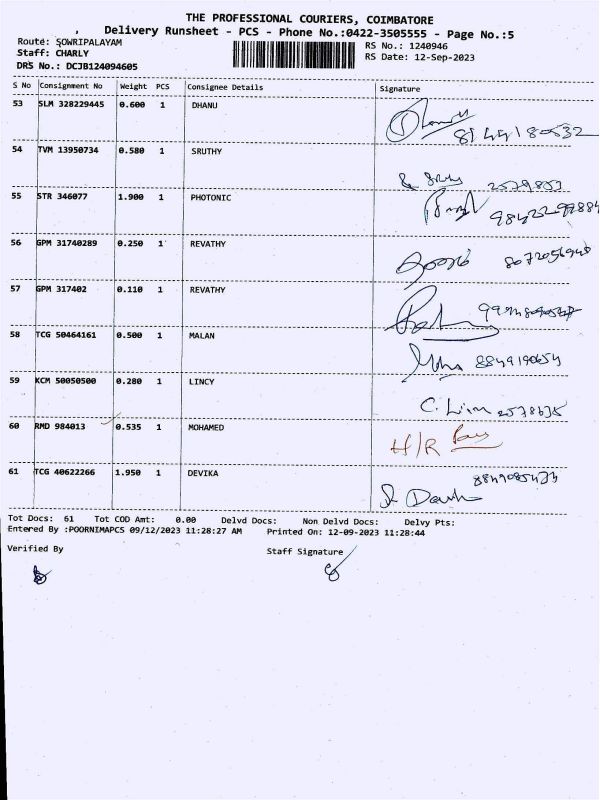 THE PROFESSIONAL COURIERS, COIMBATORE
Delivery Runsheet - PCS - Phone No.:0422-3505555 - Page No.:5
Route: SOWRIPALAYAM
RS No.: 1240946
Staff: CHARLY
RS Date: 12-Sep-2023
DRS No.: DCJB124094605
S No Consignment No Weight PCS Consignee Details Signature
53 SLM 328229445 0.600 1 DHANU
54 TVM 13950734 0.580 1 SRUTHY
2579803
55 STR 346077 1.900 1 PHOTONIC
56 GPM 31740289 0.250 1 REVATHY
57 GPM 317402 0.110 1 REVATHY
58 TCG 50464161 0.500 1 MALAN
59 KCM 50050500 0.280 1 LINCY
60 RMD 984013 0.535 1 MOHAMED
H/R
61 TCG 40622266 1.950 1 DEVIKA
Tot Docs: 61 Tot COD Amt: 0.00 Delvd Docs: Non Delvd Docs: Delvy Pts:
Entered By :POORNIMAPCS 09/12/2023 11:28:27 AM Printed On: 12-09-2023 11:28:44
Verified By
Staff Signature